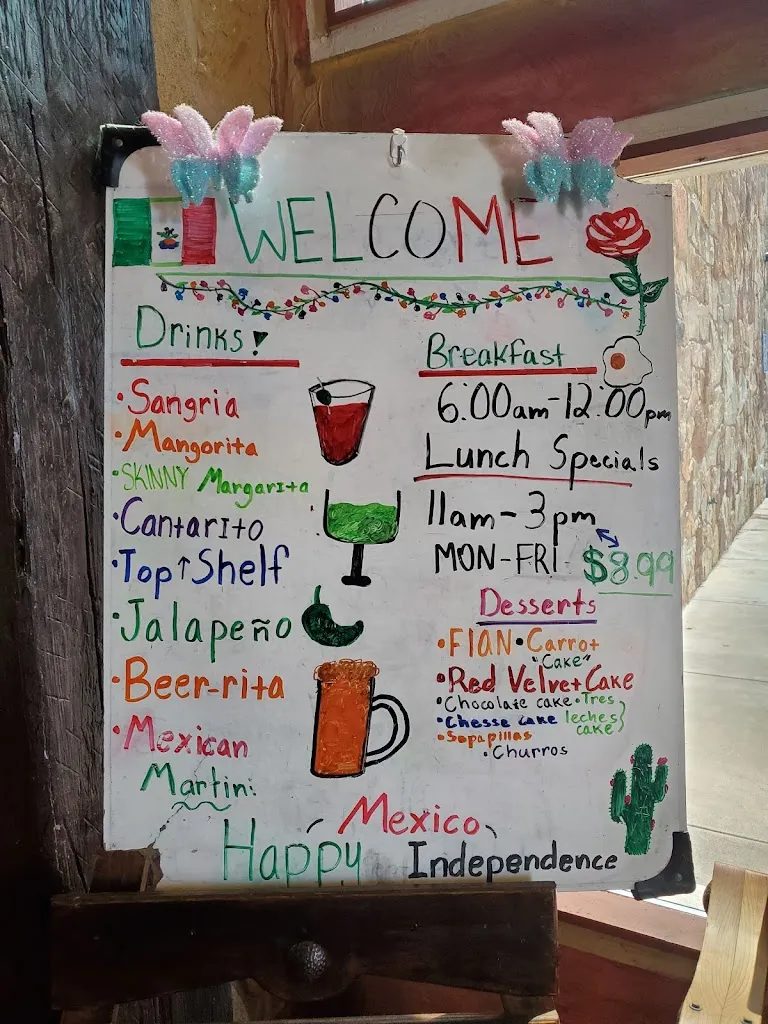 WELCOME
Drinks
•Sangria
•Mangorita
•SKINNY Margarita
•Cantarito
•Top↑Shelf
•Jalapeño
•Beer-rita
•Mexican
Martini
Breakfast
6:00am-12:00pm
Lunch Specials
11am-3pm
MON-FRI- $8.99
Desserts
•FlAN •Carrot
"Cake"
•Red Velvet Cake
•Chocolate cake •Tres
•Chesse cake leches
•Sopapillas cake
•Churros
Mexico
Happy Independence